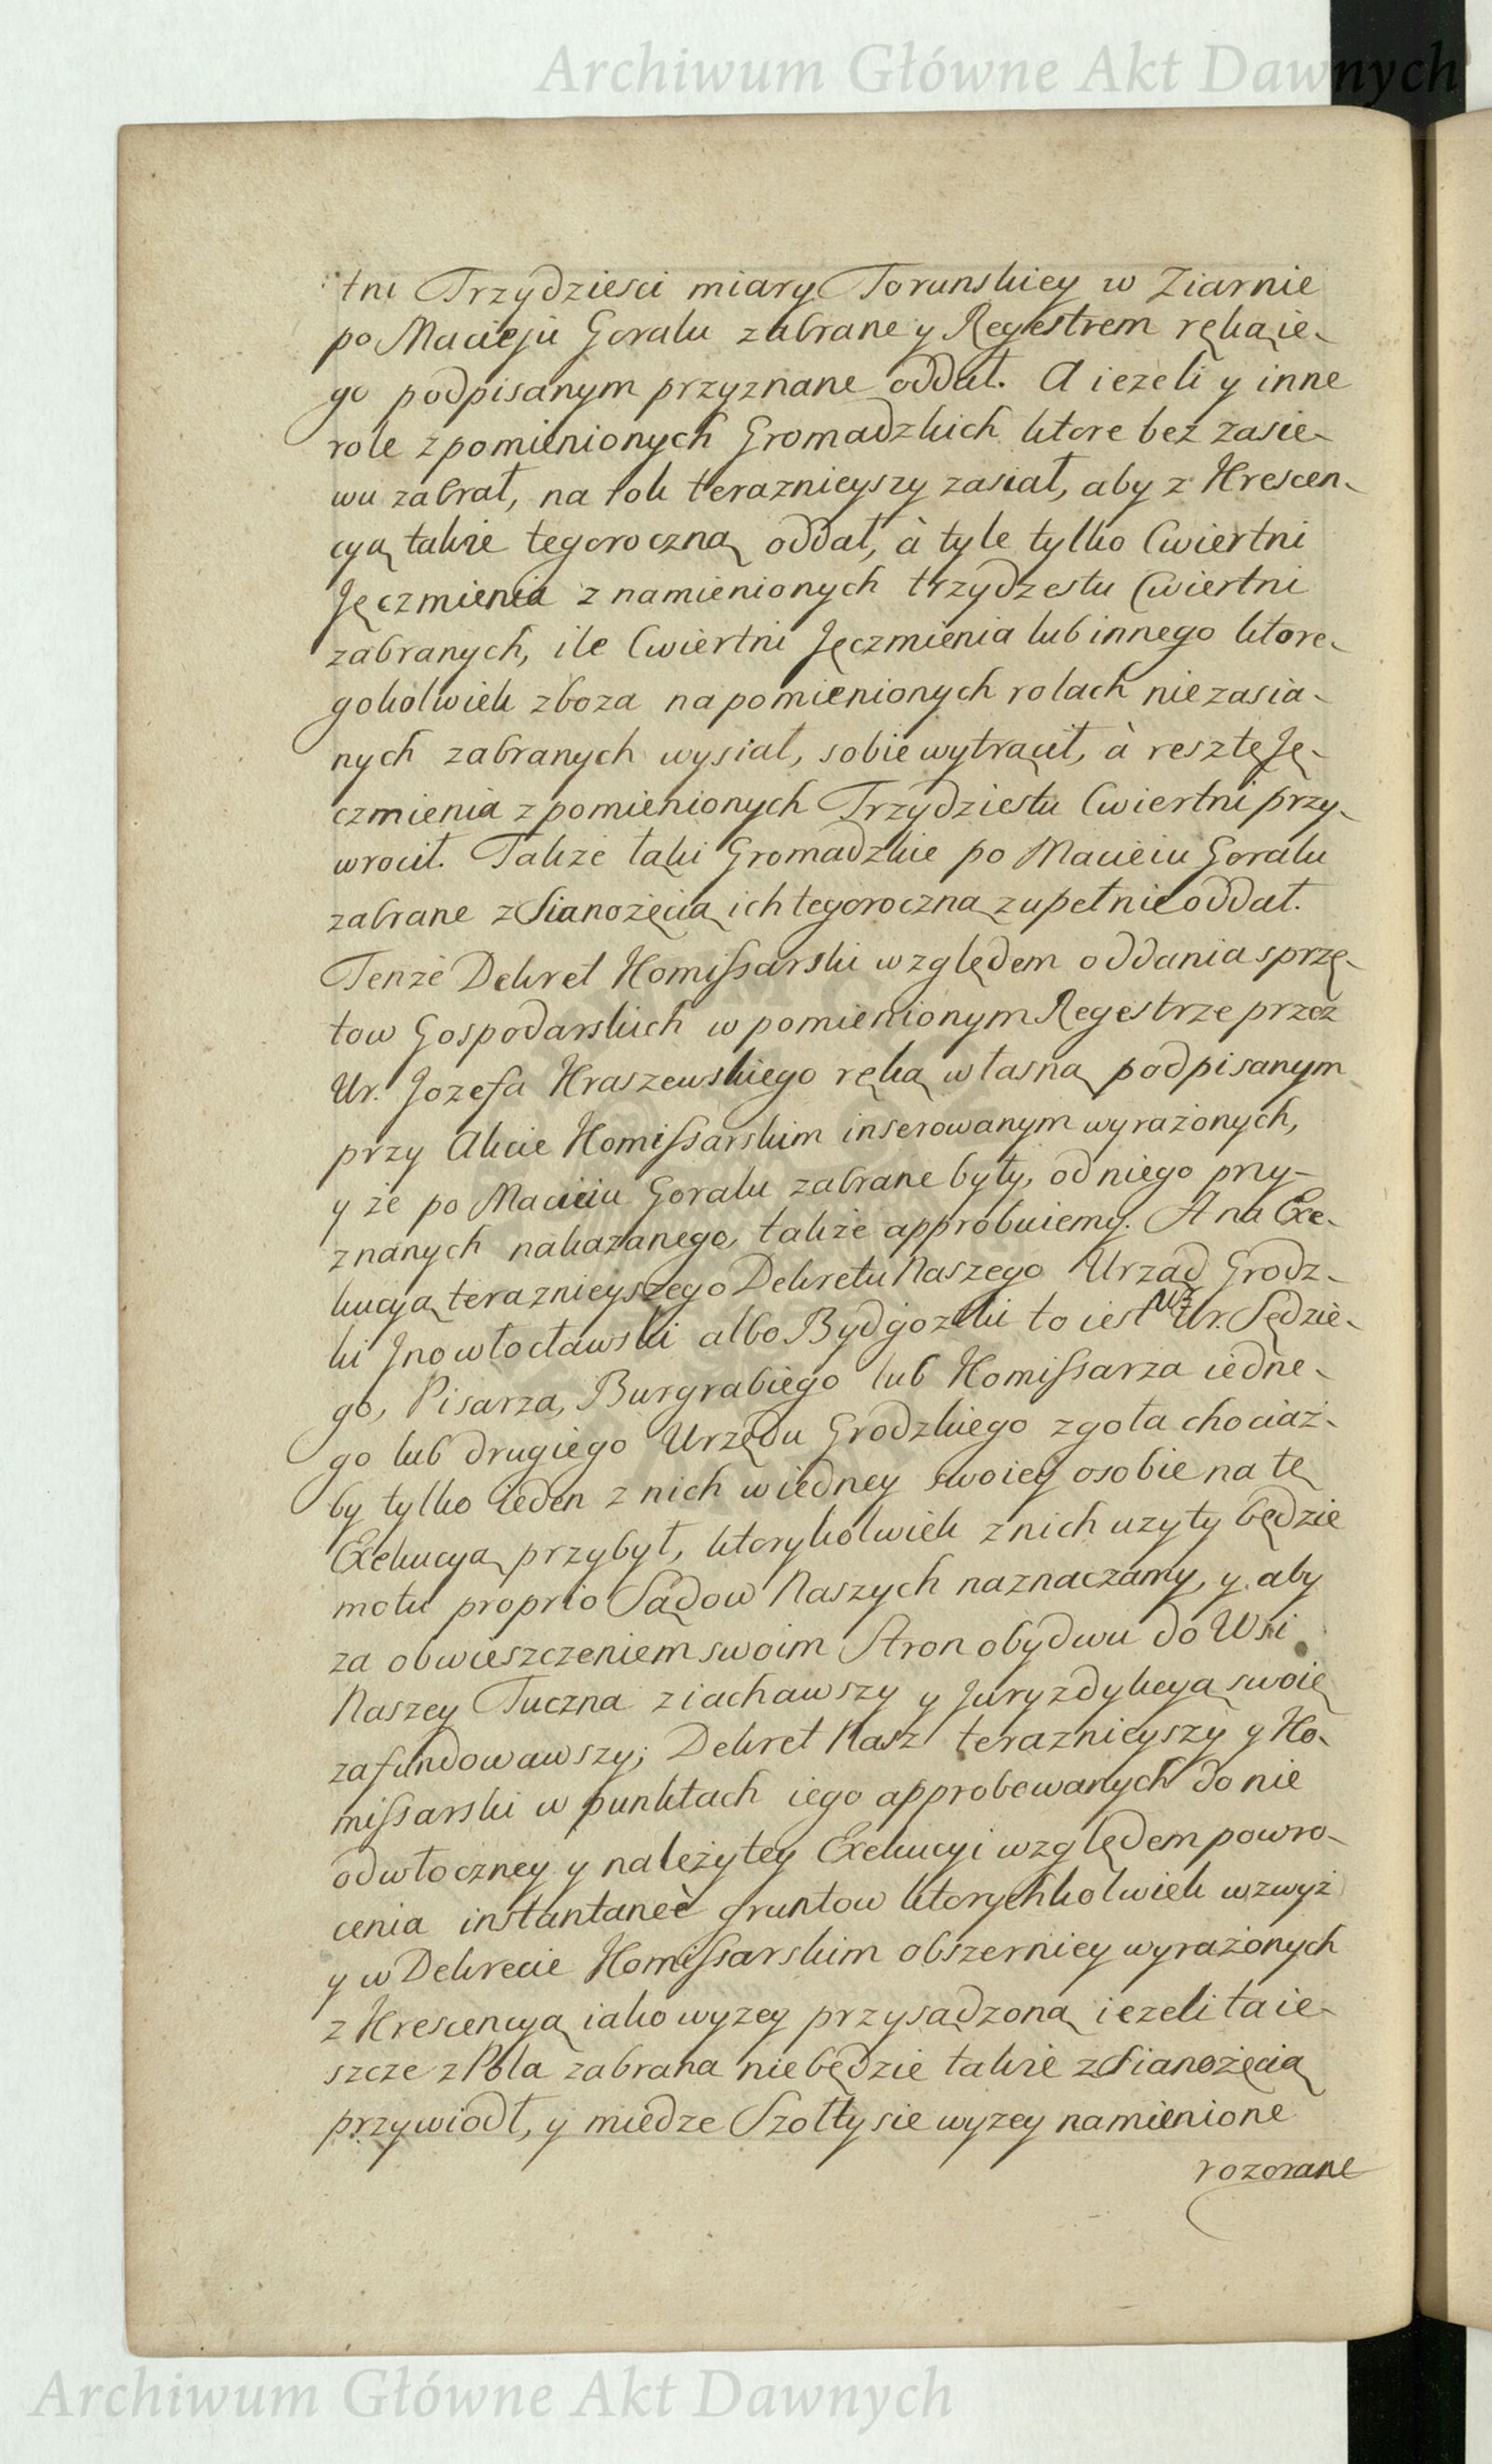 Archiwum Główne Akt Dawnych
tni Trzydziesci miary Torunskiey w Ziarnie
po Macieju Goralu zabrane y Regestrem ręką ie-
go podpisanym przyznane oddał. A iezeli y inne
role z pomienionych Gromadzkich ktore bez zasie-
wu zabrał, na rok teraznieyszy zasiał, aby z Krescen-
cyą takze tegoroczną oddał, à tyle tylko Cwiertni
Jęczmienia z namienionych trzydzestu Cwiertni
zabranych, ile Cwiertni Jęczmienia lub innego ktore-
gokolwiek zboza na pomienionych rolach niezasia-
nych zabranych wysiał, sobie wytrącił, à resztę Ję-
czmienia z pomienionych Trzydziestu Cwiertni przy-
wrocił. Takze łąki Gromadzkie po Macieiu Goralu
zabrane z Sianożęcią ich tegoroczną zupełnie oddał.
Tenże Dekret Komissarski względem oddania sprzę-
tow Gospodarskich w pomienionym Regestrze przez
Ur. Jozefa Kraszewskiego ręką własną podpisanym
przy Akcie Komissarskim inserowanym wyrażonych,
y że po Macieiu Goralu zabrane były, od niego przy-
znanych nakazanego, także approbuiemy. A na Exe-
kucyą teraznieyszego Dekretu Naszego Urząd Grodz-
ki Jnowłocławski albo Bydgozki to iest Ur. Sędzie-
go, Pisarza, Burgrabiego lub Komissarza iedne-
go lub drugiego Urzędu Grodzkiego zgoła chociaż-
by tylko ieden z nich w iedney swoiey osobie na tę
Exekucyą przybył, ktorykolwiek z nich uzyty będzie
motu proprio Sądow Naszych naznaczamy, y aby
za obwieszczeniem swoim Stron obydwu do Wsi
Naszey Tuczna ziachawszy y Juryzdykcyą swoię
zafundowawszy; Dekret Nasz teraznieyszy y Ko-
missarski w punktach iego approbowanych do nie
odwłoczney y należytey Exekucyi względem powro-
cenia instantaneè gruntow ktorychkolwiek wzwyż
y w Dekrecie Komissarskim obszerniey wyrażonych
z Krescencyą iako wyzey przysądzoną iezeli ta ie-
szcze z Pola zabrana nie będzie takze z Sianożęcią
przywiodł, y miedze Szołtysie wyzey namienione
rozorane
Archiwum Główne Akt Dawnych